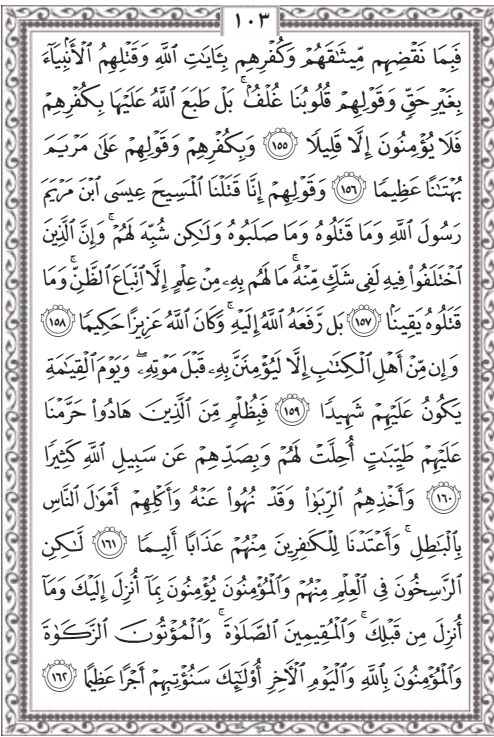 ١٠٣
فَبِمَا نَقْضِهِم مِّيثَٰقَهُمْ وَكُفْرِهِم بِـَٔايَٰتِ ٱللَّهِ وَقَتْلِهِمُ ٱلْأَنۢبِيَآءَ
بِغَيْرِ حَقٍّ وَقَوْلِهِمْ قُلُوبُنَا غُلْفٌۢ ۚ بَلْ طَبَعَ ٱللَّهُ عَلَيْهَا بِكُفْرِهِمْ
فَلَا يُؤْمِنُونَ إِلَّا قَلِيلًا ١٥٥ وَبِكُفْرِهِمْ وَقَوْلِهِمْ عَلَىٰ مَرْيَمَ
بُهْتَٰنًا عَظِيمًا ١٥٦ وَقَوْلِهِمْ إِنَّا قَتَلْنَا ٱلْمَسِيحَ عِيسَى ٱبْنَ مَرْيَمَ
رَسُولَ ٱللَّهِ وَمَا قَتَلُوهُ وَمَا صَلَبُوهُ وَلَٰكِن شُبِّهَ لَهُمْ ۚ وَإِنَّ ٱلَّذِينَ
ٱخْتَلَفُوا۟ فِيهِ لَفِى شَكٍّ مِّنْهُ ۚ مَا لَهُم بِهِۦ مِنْ عِلْمٍ إِلَّا ٱتِّبَاعَ ٱلظَّنِّ ۚ وَمَا
قَتَلُوهُ يَقِينًۢا ١٥٧ بَل رَّفَعَهُ ٱللَّهُ إِلَيْهِ ۚ وَكَانَ ٱللَّهُ عَزِيزًا حَكِيمًا ١٥٨
وَإِن مِّنْ أَهْلِ ٱلْكِتَٰبِ إِلَّا لَيُؤْمِنَنَّ بِهِۦ قَبْلَ مَوْتِهِۦ ۖ وَيَوْمَ ٱلْقِيَٰمَةِ
يَكُونُ عَلَيْهِمْ شَهِيدًا ١٥٩ فَبِظُلْمٍ مِّنَ ٱلَّذِينَ هَادُوا۟ حَرَّمْنَا
عَلَيْهِمْ طَيِّبَٰتٍ أُحِلَّتْ لَهُمْ وَبِصَدِّهِمْ عَن سَبِيلِ ٱللَّهِ كَثِيرًا
١٦٠ وَأَخْذِهِمُ ٱلرِّبَوٰا۟ وَقَدْ نُهُوا۟ عَنْهُ وَأَكْلِهِمْ أَمْوَٰلَ ٱلنَّاسِ
بِٱلْبَٰطِلِ ۚ وَأَعْتَدْنَا لِلْكَٰفِرِينَ مِنْهُمْ عَذَابًا أَلِيمًا ١٦١ لَّٰكِنِ
ٱلرَّٰسِخُونَ فِى ٱلْعِلْمِ مِنْهُمْ وَٱلْمُؤْمِنُونَ يُؤْمِنُونَ بِمَآ أُنزِلَ إِلَيْكَ وَمَآ
أُنزِلَ مِن قَبْلِكَ ۚ وَٱلْمُقِيمِينَ ٱلصَّلَوٰةَ ۚ وَٱلْمُؤْتُونَ ٱلزَّكَوٰةَ
وَٱلْمُؤْمِنُونَ بِٱللَّهِ وَٱلْيَوْمِ ٱلْـَٔاخِرِ أُو۟لَٰٓئِكَ سَنُؤْتِيهِمْ أَجْرًا عَظِيمًا ١٦٢